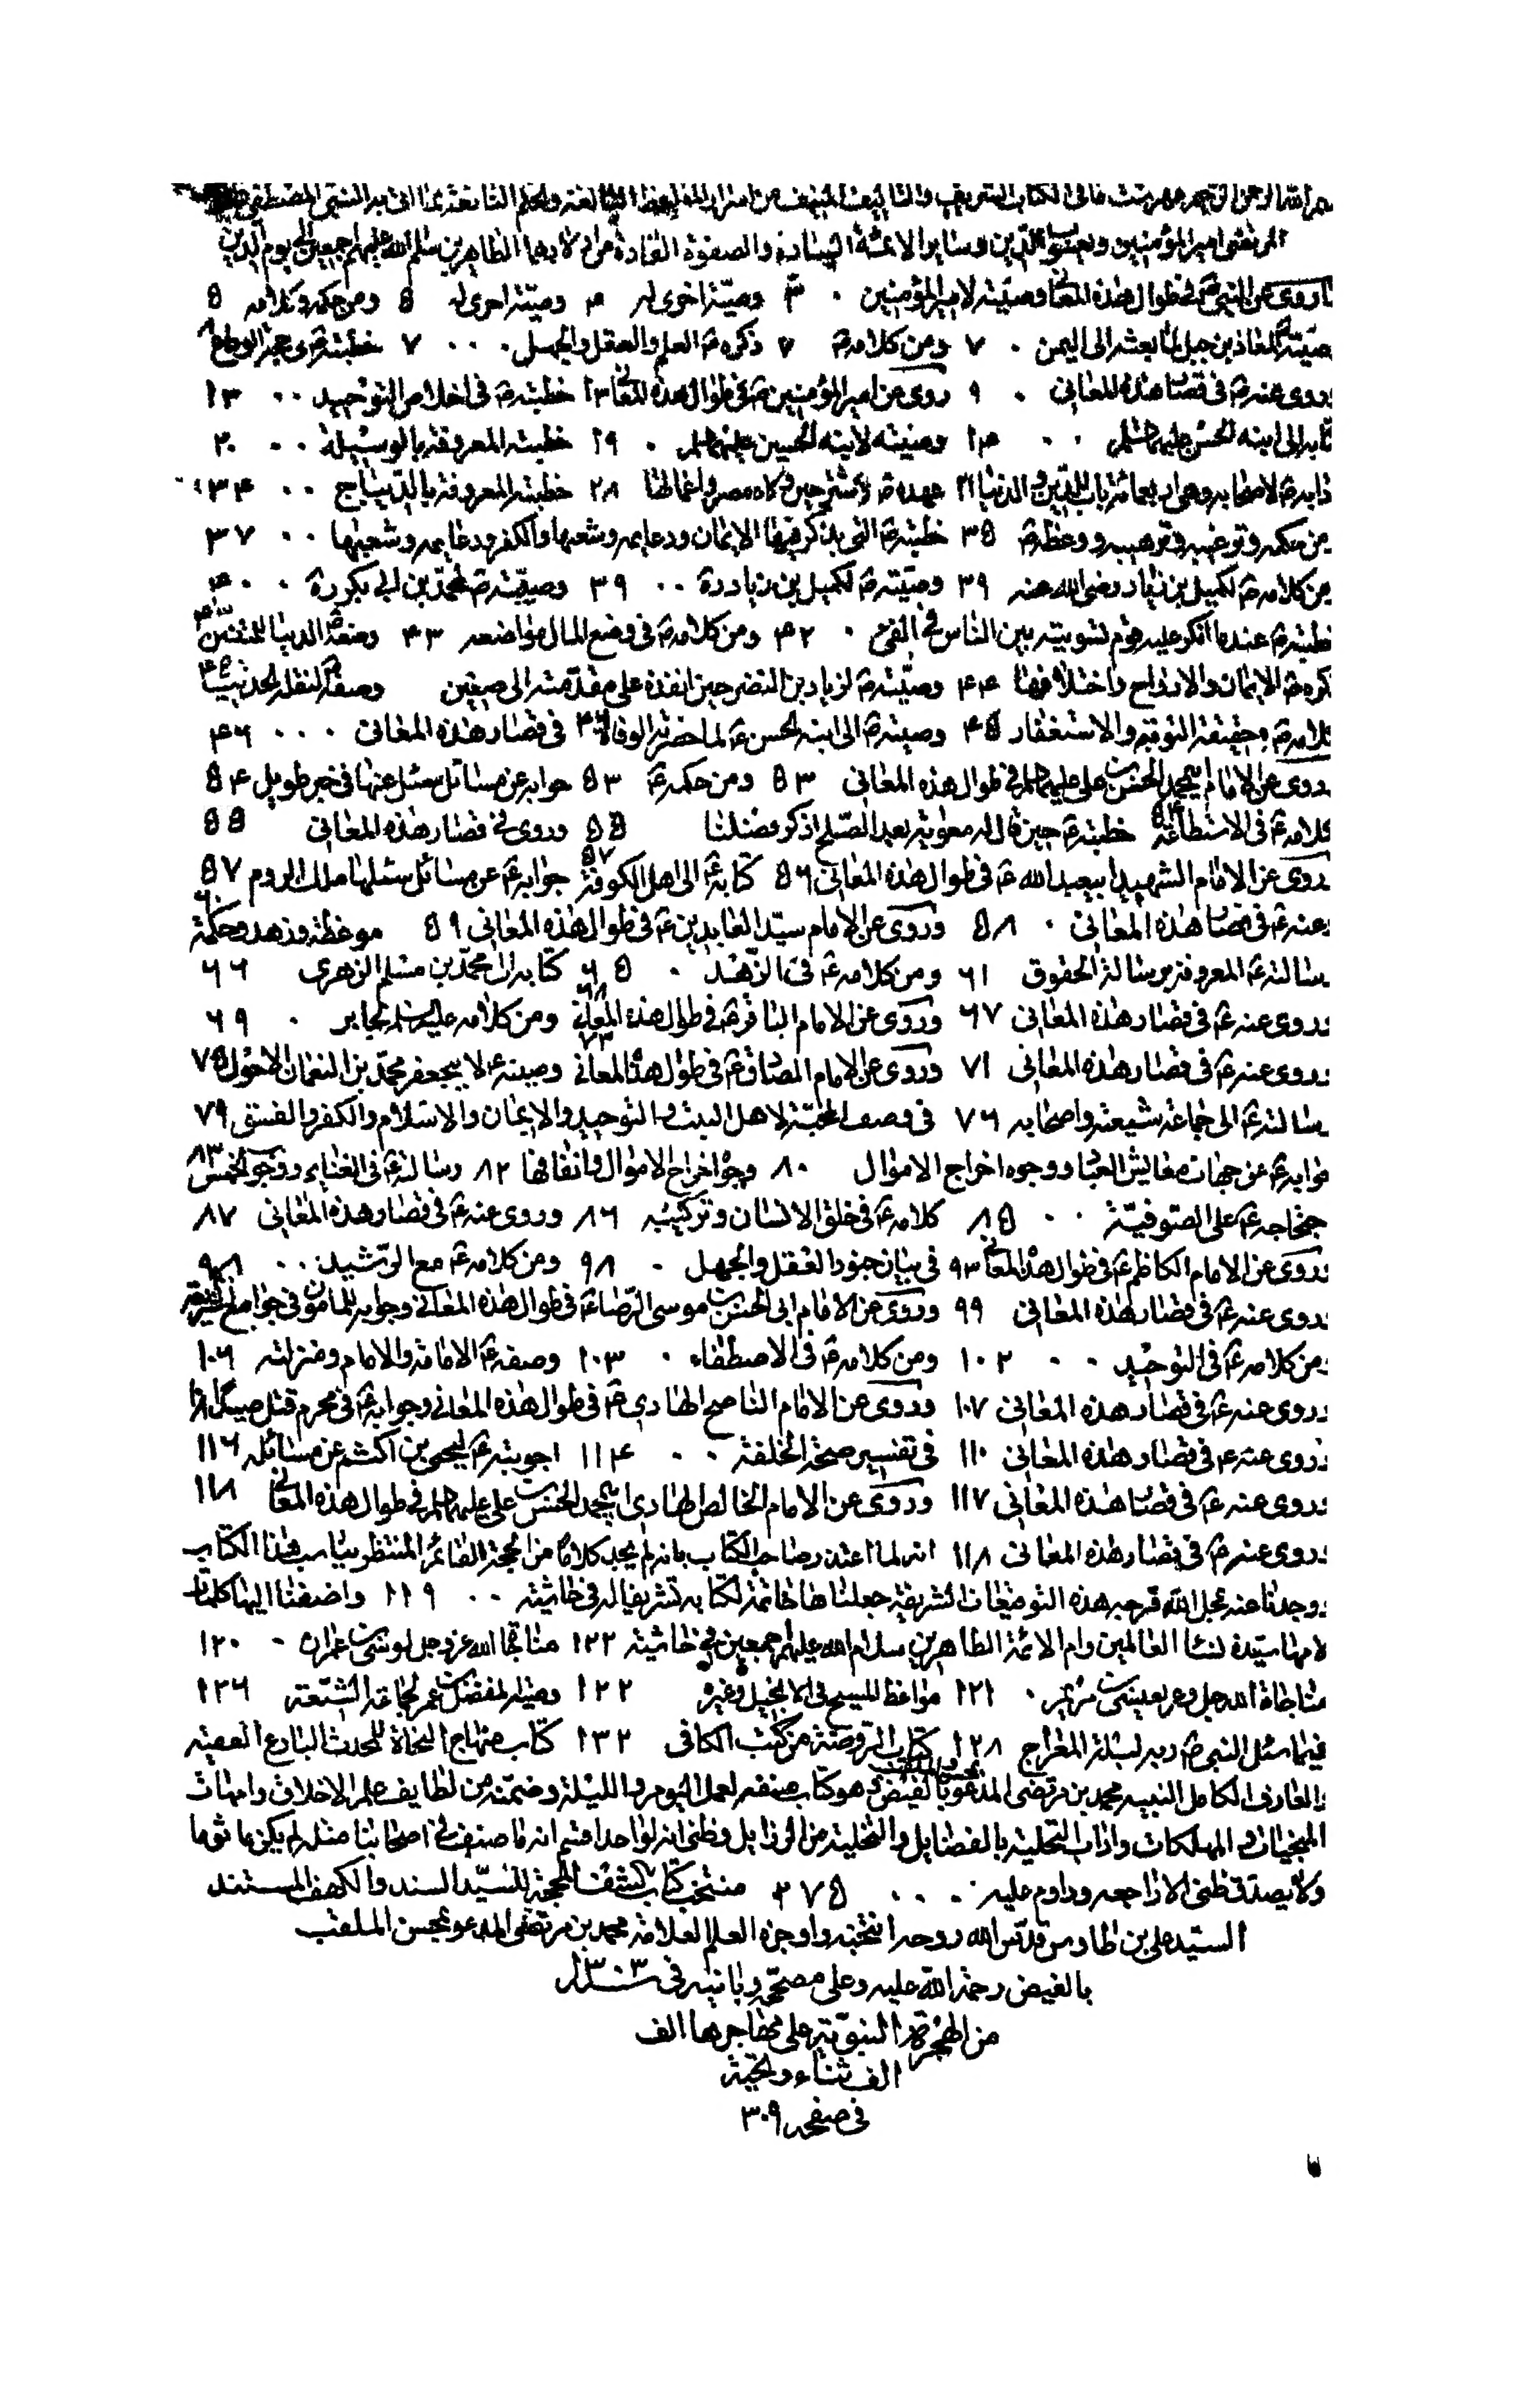 الله الرحمن الرحيم فهرست ما في الكتاب الشريف والتأليف المنيف من البالغة والحكم
المرتضى امير المؤمنين ويعسوب الدين وسائر الائمة السادة والصفوة القادة من اولادهما الطاهرين سلم الله عليهم اجمعين الى يوم الدين
روى عن النبي ص في طوال هذه المعاني وصيته لامير المؤمنين ٠ ٣ وصيّة اخرى له ٣ وصيّة اخرى له ۵ ومن حكمه وكلامه ۵
صيّته لمعاذ بن جبل لما بعثه الى اليمن ٠ ٧ ومن كلامه ص ٧ ذكره ص العلم والعقل والجهل ٠ ٠ ٠ ٧ خطبته ص في حجة الوداع ٨
روى عنه ص في قصار هذه المعاني ٠ ٩ روى عن امير المؤمنين ع في طوال هذه المعاني ١٣ خطبته ع في اخلاص التوحيد ٠ ٠ ١٣
تابه الى ابنه الحسن عليهما السلم ٠ ٠ ١۴ وصيته لابنه الحسين عليهما السلم ٠ ١٩ خطبته المعروفة بالوسيلة ٠ ٠ ٢٠
دابه ع لاصحابه وهي اربعمائة باب للدين والدنيا ٢١ عهده ع للاشتر حين ولاه مصر واعمالها ٢٨ خطبته المعروفة بالديباج ٠ ٠ ٣۴
من حكمه وترغيبه وترهيبه ووعظه ع ٣۵ خطبته ع التي يذكر فيها الايمان ودعايمه وشعبها والكفر ودعايمه وشعبها ٠ ٠ ٣٧
من كلامه ع لكميل بن زياد رضي الله عنه ٣٩ وصيّته ع لكميل بن زياد ره ٠ ٠ ٣٩ وصيّته ع لمحمّد بن ابي بكر ره ٠ ٠ ۴٠
طبته ع عندما انكر عليه قوم تسويته بين الناس في الفئ ٠ ۴٢ ومن كلامه ع في وضع المال مواضعه ۴٣ وصفه ع الدنيا للمتقين ۴٣
كره ع الايمان والارواح واختلافها ۴۴ وصيّته ع لزياد بن النضر حين انفذه على مقدّمته الى صفين وصفه ع لنقلة الحديث ۴۵
كلامه ع وحقيقة التوبة والاستغفار ۴۵ وصيته ع الى ابنه الحسن ع لما حضرته الوفاة ۴۶ في قصار هذه المعاني ٠ ٠ ٠ ۴۶
روى عن الامام ابي محمد الحسن بن علي عليهما السلم في طوال هذه المعاني ۵٣ ومن حكمه ع ۵٣ جوابه عن مسائل سئل عنها في خبر طويل ۵۴
كلامه ع في الاستطاعة ۵۴ خطبته ع حين قال له معوية بعد الصلح اذكر فضلنا ۵۵ وروى في قصار هذه المعاني ۵۵
روى عن الامام الشهيد ابي عبد الله ع في طوال هذه المعاني ۵۶ كتابه ع الى اهل الكوفة ۵٧ جوابه ع عن مسائل سئلها ملك الروم ۵٧
عنه ع في قصار هذه المعاني ٠ ۵٨ وروى عن الامام سيّد العابدين ع في طوال هذه المعاني ۵٩ موعظة وزهد وحكمة ۶٠
سالته ع المعروفة برسالة الحقوق ۶١ ومن كلامه ع في الزّهد ٠ ۶۵ كتابه الى محمّد بن مسلم الزهري ۶۶
روى عنه ع في قصار هذه المعاني ۶٧ وروى عن الامام الباقر ع في طوال هذه المعاني ۶٨ ومن كلامه عليه السلم لجابر ٠ ۶٩
روى عنه ع في قصار هذه المعاني ٧١ وروى عن الامام الصادق ع في طوال هذه المعاني ٧٣ وصيته ع لابي جعفر محمّد بن النعمان الاحول ٧۵
سالته ع الى جماعة شيعته واصحابه ٧۶ في وصف المحبّة لاهل البيت والتوحيد والايمان والاسلام والكفر والفسق ٧٩
جوابه ع عن جهات معايش العباد ووجوه اخراج الاموال ٨٠ وجوه اخراج الاموال وانفاقها ٨٢ رسالته ع في الغنايم ووجوب الخمس ٨٣
حتجاجه ع على الصوفيّة ٠ ٠ ٨۵ كلامه ع في خلق الانسان وتركيبه ٨۶ وروى عنه ع في قصار هذه المعاني ٨٧
روى عن الامام الكاظم ع في طوال هذه المعاني ٩٣ في بيان جنود العقل والجهل ٠ ٩٨ ومن كلامه ع مع الرّشيد ٠ ٠ ٩٨
روى عنه ع في قصار هذه المعاني ٩٩ وروى عن الامام ابي الحسن بن موسى الرّضا ع في طوال هذه المعاني وجوابه للمامون في جوامع الشريعة
من كلامه ع في التوحيد ٠ ٠ ١٠٢ ومن كلامه ع في الاصطفاء ٠ ١٠٣ وصفه ع الامامة والامام ومنزلته ١٠۶
روى عنه ع في قصار هذه المعاني ١٠٧ وروى عن الامام الناصح الهادي ع في طوال هذه المعاني وجوابه ع في محرم قتل صيدا
روى عنه ع في قصار هذه المعاني ١١٠ في تفسير صحة الخلقة ٠ ٠ ١١۴ اجوبته ع ليحيى بن اكثم عن مسائله ١١۶
روى عنه ع في قصار هذه المعاني ١١٧ وروى عن الامام الخالص الهادي ابي محمد الحسن بن علي عليهما السلم في طوال هذه المعاني ١١٨
روى عنه ع في قصار هذه المعاني ١١٨ انه لما اعتذر صاحب الكتاب بانه لم يجد كلاما من الحجة القائم المنتظر يناسب هذا الكتاب
وجدنا عنه عجل الله فرجه هذه التوقيعات الشريفة جعلناها خاتمة لكتابه تشريفا له في حاشيته ٠ ٠ ١١٩ واضفنا اليها كلمات
لامها سيّدة نساء العالمين وام الائمة الطاهرين سلام الله عليهم اجمعين في حاشيته ١٢٢ مناجاة الله عز وجل لموسى بن عمران ٠ ١٢٠
مناجاة الله جل وعز بعيسى بن مريم ٠ ١٢١ مواعظ المسيح في الانجيل وغيره ١٢٢ وصية المفضل بن عمر لجماعة الشيعة ١٢۶
فيما سئل النبي ص ربه ليلة المعراج ١٢٨ كتاب الروضة من كتب الكافي ١٣٢ كتاب منهاج النجاة للمحدث البارع الفقيه
العارف الكامل النبيه محمد بن مرتضى المدعو بمحسن والملقب بالفيض وهو كتاب صنفه لعمل اليوم والليلة وضمنه من لطايف علم الاخلاق وامهات
المنجيات والمهلكات واداب التحلية بالفضايل والتخلية من الرذايل وظني انه لو احد اقسم انه ما صنف في اصحابنا مثله لم يكن ماثوما
ولا يصدق ظني الا اذا راجعه وداوم عليه ٠ ٠ ٠ ٢٧۵ منتخب كتاب كشف المحجة للسيّد السند والكهف المستند
السيد علي بن طاوس قدس الله روحه انتخبه واوجزه العلم العلامة محمد بن مرتضى المدعو بمحسن الملقب
بالفيض رحمة الله عليه وعلى مصحّحه وبانيه في سنة ١٣٠٣
من الهجرة النبويّة على مهاجرها الف
الف ثناء وتحيّة
في صفحه ٣٠٩